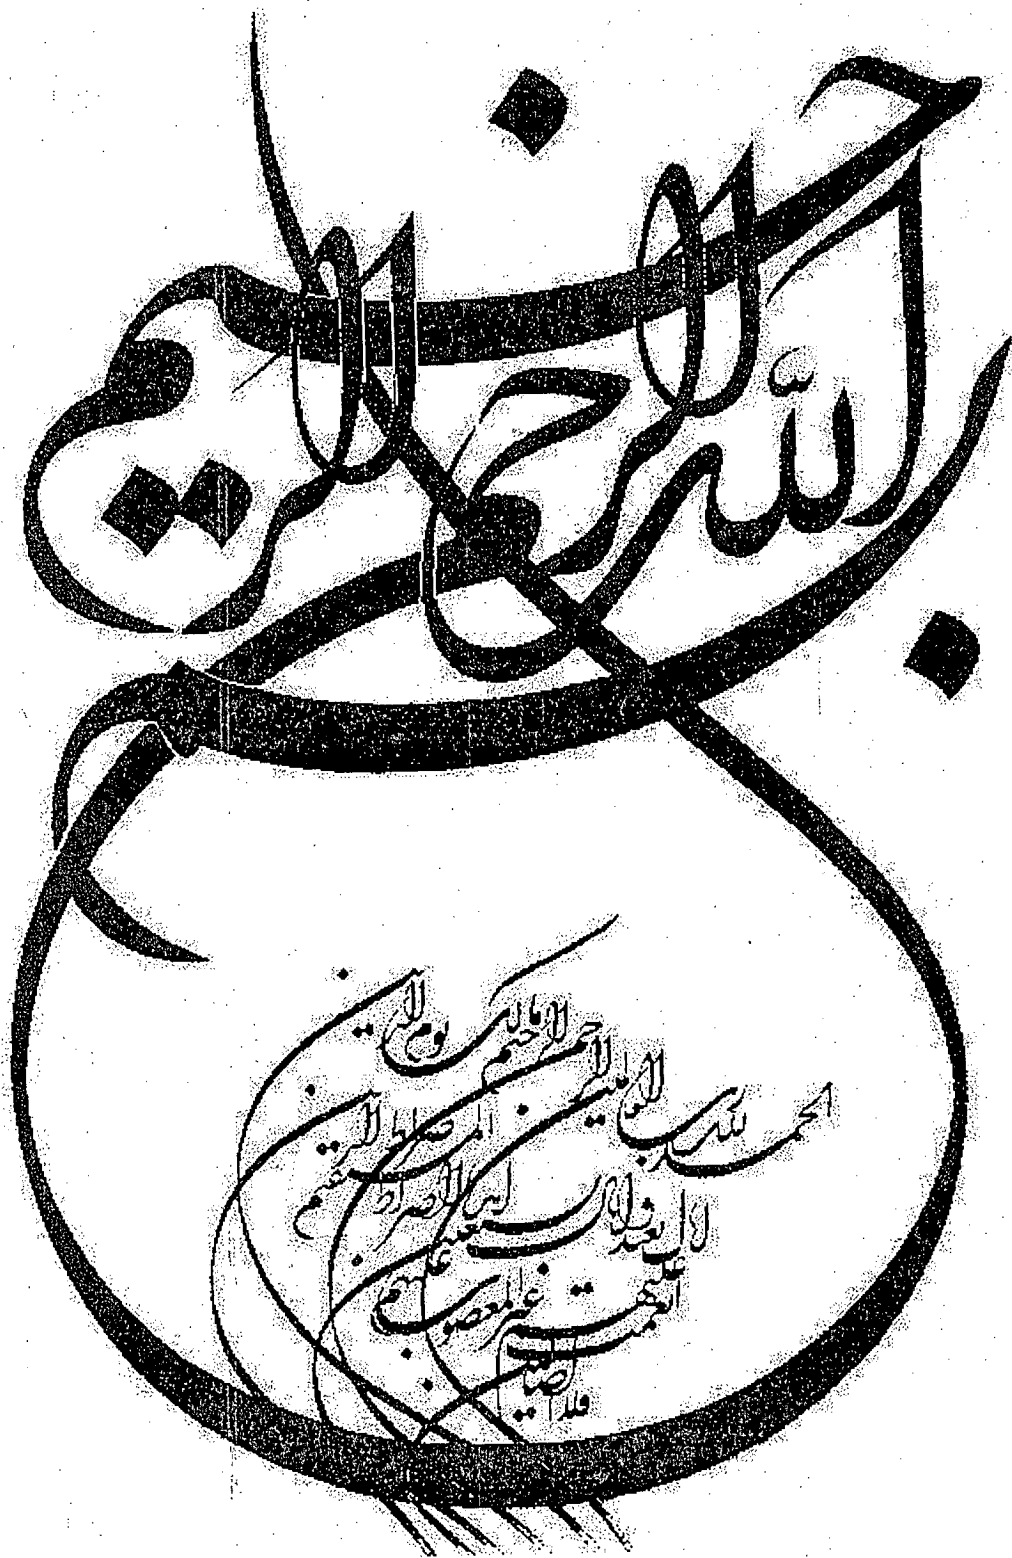 بسم الله الرحمن الرحيم
الحمد لله رب العالمين
الرحمن الرحيم مالك يوم الدين
اياك نعبد و اياك نستعين
اهدنا الصراط المستقيم
صراط الذين انعمت عليهم
غير المغضوب عليهم
و لا الضالين